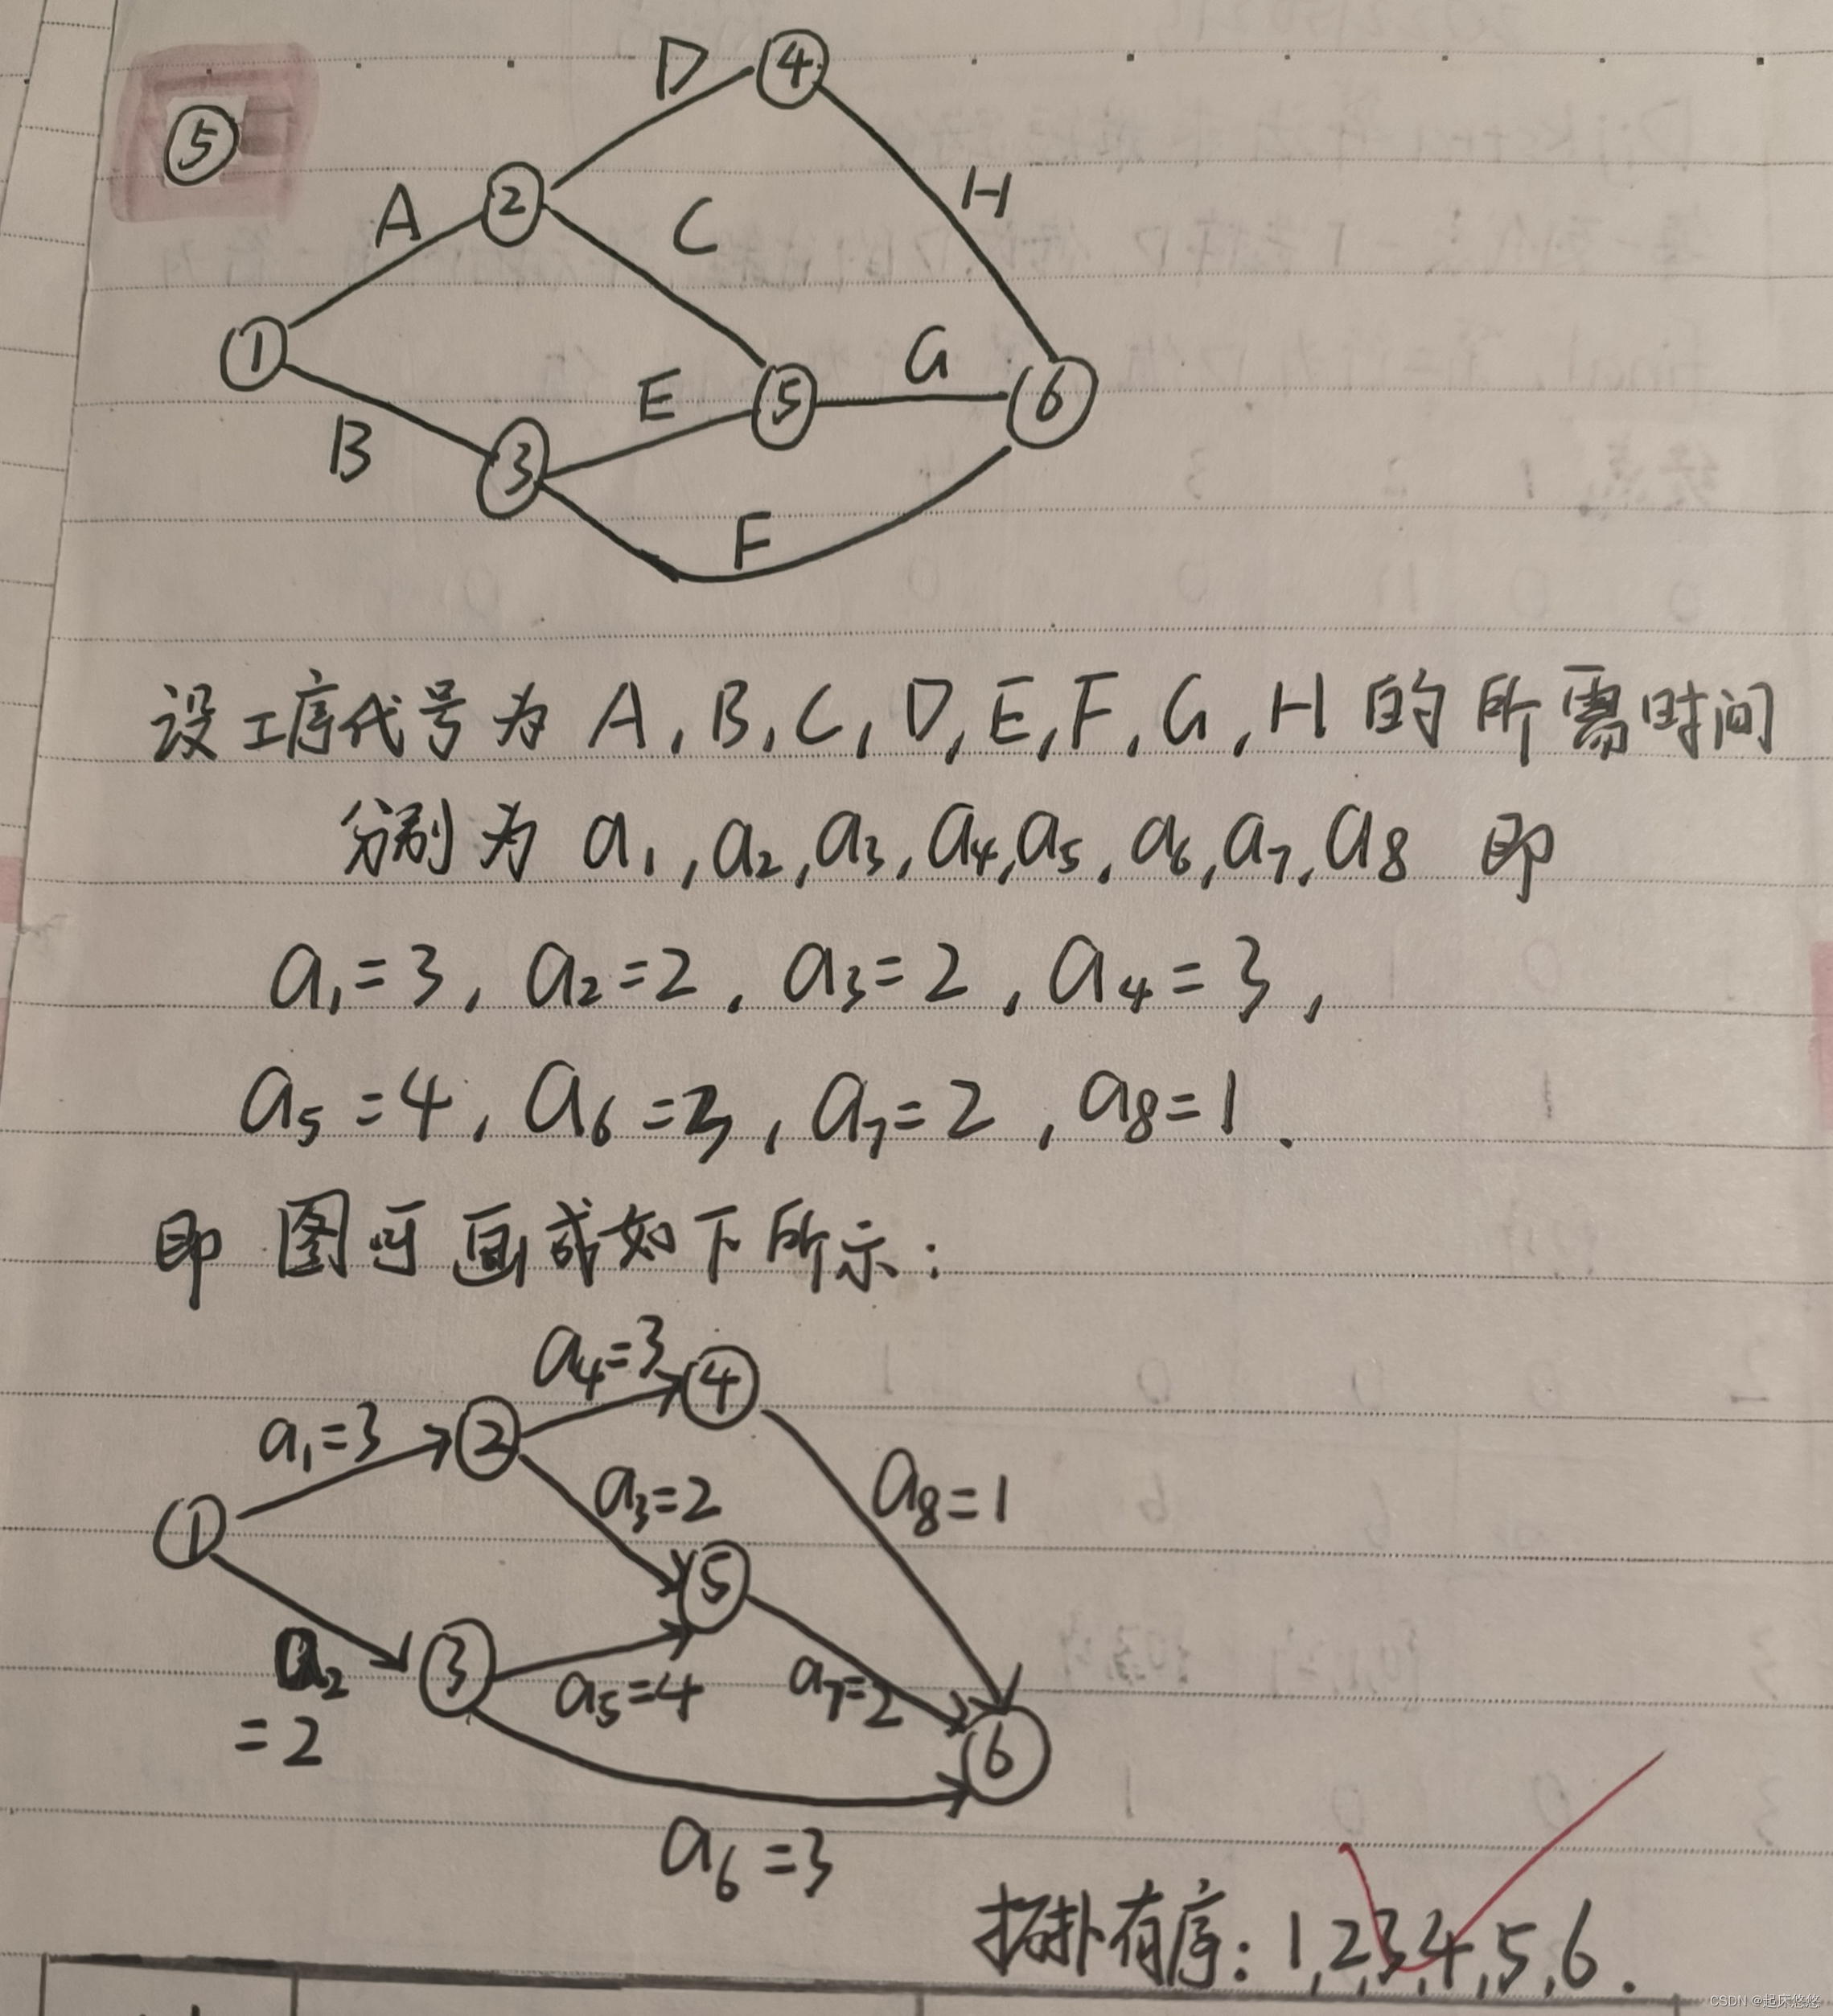 ⑤
D ④
A ② C H
①
E ⑤ G ⑥
B ③
F
设工序代号为 A,B,C,D,E,F,G,H 的所需时间
分别为 a₁,a₂,a₃,a₄,a₅,a₆,a₇,a₈ 即
a₁=3, a₂=2, a₃=2, a₄=3,
a₅=4, a₆=3, a₇=2, a₈=1.
即图可画成如下所示:
a₄=3 ④
a₁=3 ②
a₃=2 a₈=1
① ⑤
a₂ ③
=2 a₅=4 a₇=2
⑥
a₆=3
拓扑有序: 1,2,3,4,5,6.
CSDN @起床悠悠